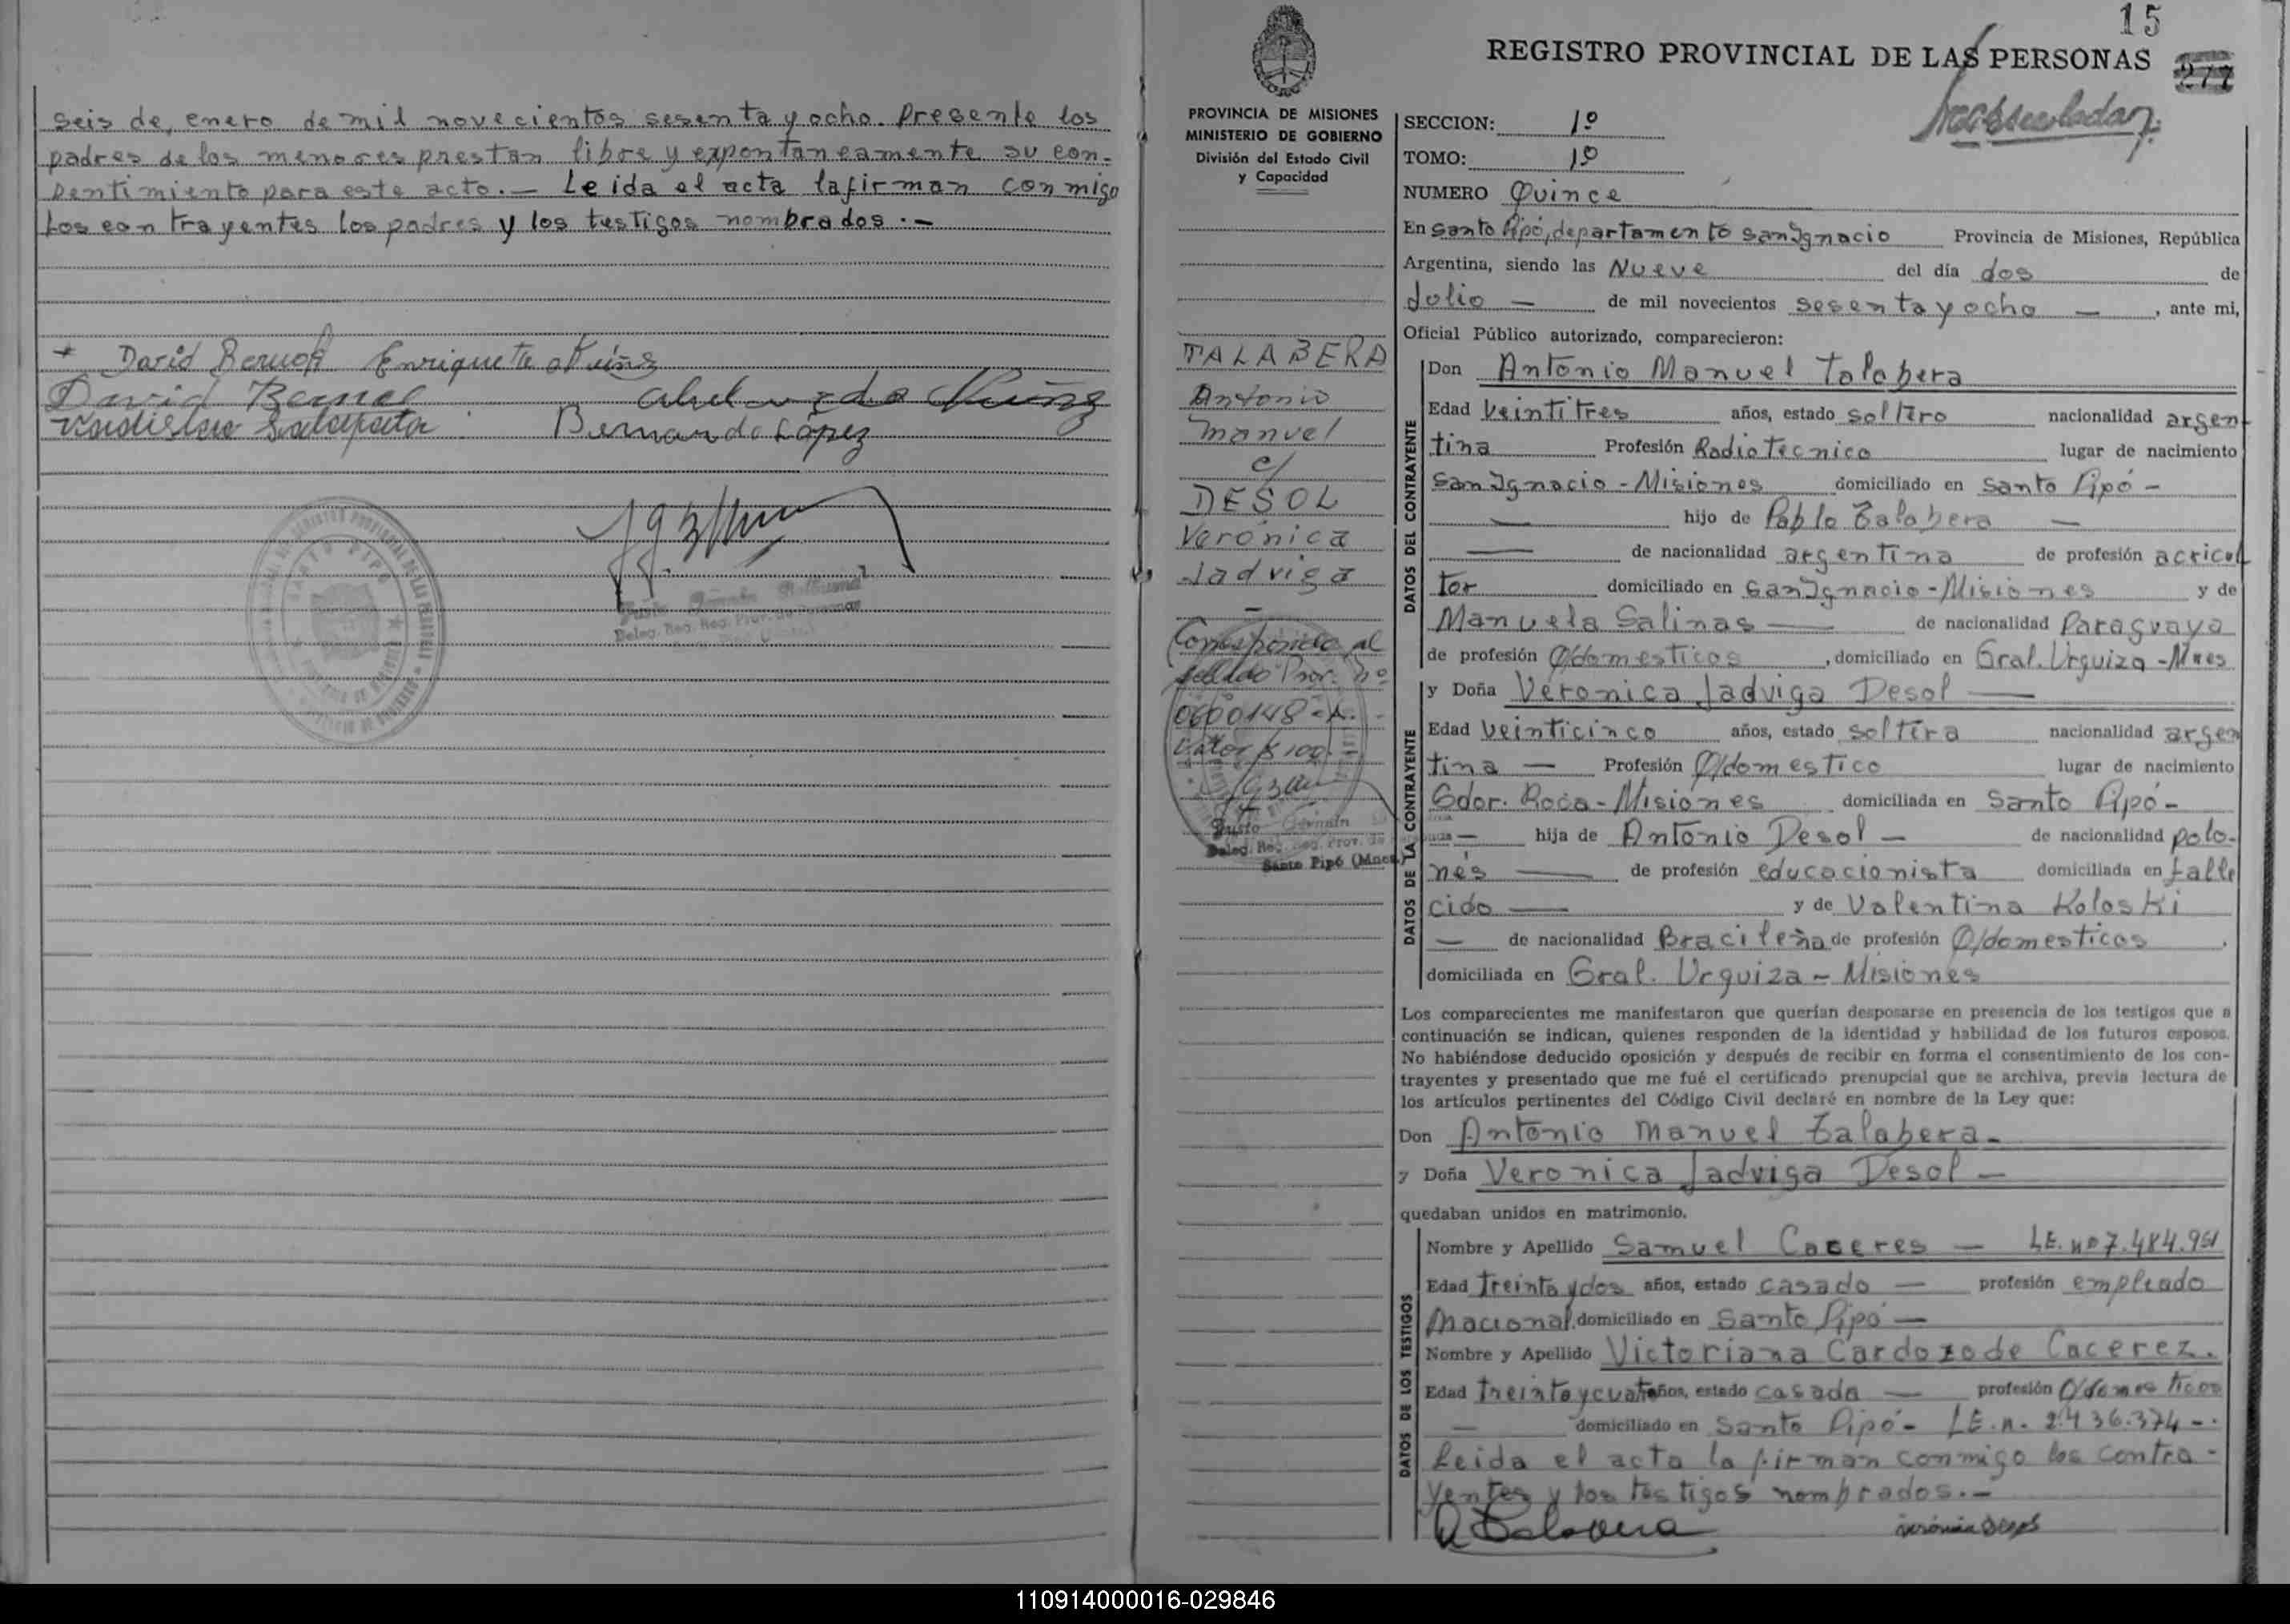 seis de, enero de mil novecientos sesenta y ocho. Presente los
padres de los menores prestan libre y expontaneamente su con-
sentimiento para este acto.— Leida el acta la firman conmigo
los contrayentes los padres y los testigos nombrados.—
David Enriqueta
David
Bernardo López
15
REGISTRO PROVINCIAL DE LAS PERSONAS
277
PROVINCIA DE MISIONES
MINISTERIO DE GOBIERNO
División del Estado Civil
y Capacidad
TALABERA
Antonio
Manuel
c/
DESOL
Verónica
Jadviga
Corresponde al
sellado Prov. Nº
0600148-A.
Valor $ 100.-
Justo Germán
Deleg. Reg. Prov. de
Santo Pipó (Mnes.)
SECCION: 1º
TOMO: 1º
NUMERO Quince
En Santo Pipó, departamento San Ignacio Provincia de Misiones, República
Argentina, siendo las Nueve del día dos de
Julio — de mil novecientos sesenta y ocho — , ante mi,
Oficial Público autorizado, comparecieron:
DATOS DEL CONTRAYENTE
Don Antonio Manuel Talabera
Edad Veintitres años, estado soltero nacionalidad argen-
tina Profesión Radiotecnico lugar de nacimiento
San Ignacio - Misiones domiciliado en Santo Pipó -
— hijo de Pablo Talabera —
— de nacionalidad argentina de profesión acricul
tor domiciliado en San Ignacio - Misiones y de
Manuela Salinas — de nacionalidad Paraguaya
de profesión Q/domesticos , domiciliado en Gral. Urquiza - Mnes
DATOS DE LA CONTRAYENTE
y Doña Veronica Jadviga Desol —
Edad Veinticinco años, estado soltera nacionalidad argen
tina — Profesión Q/domestico lugar de nacimiento
Gdor. Roca - Misiones domiciliada en Santo Pipó -
— hija de Antonio Desol — de nacionalidad polo-
nés — de profesión educacionista domiciliada en falle
cido — y de Valentina Koloski
— de nacionalidad Bracileña de profesión Q/domesticos
domiciliada en Gral. Urquiza - Misiones
Los comparecientes me manifestaron que querían desposarse en presencia de los testigos que a
continuación se indican, quienes responden de la identidad y habilidad de los futuros esposos.
No habiéndose deducido oposición y después de recibir en forma el consentimiento de los con-
trayentes y presentado que me fué el certificado prenupcial que se archiva, previa lectura de
los artículos pertinentes del Código Civil declaré en nombre de la Ley que:
Don Antonio Manuel Talabera -
y Doña Veronica Jadviga Desol —
quedaban unidos en matrimonio.
DATOS DE LOS TESTIGOS
Nombre y Apellido Samuel Caceres — L.E. Nº 7.484.951
Edad treinta y dos años, estado casado — profesión empleado
Nacional domiciliado en Santo Pipó —
Nombre y Apellido Victoriana Cardozo de Cacerez.
Edad treinta y cuatro años, estado casada — profesión Q/domesticos
— domiciliado en Santo Pipó - L.E.n. 2.436.374 -.
Leida el acta la firman conmigo los contra-
yentes y los testigos nombrados.—
A Talavera
110914000016-029846